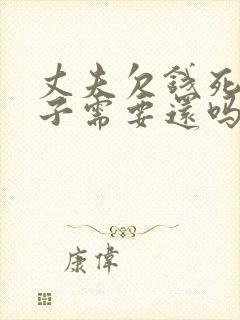 丈夫欠錢死
子需要還嗎
康偉